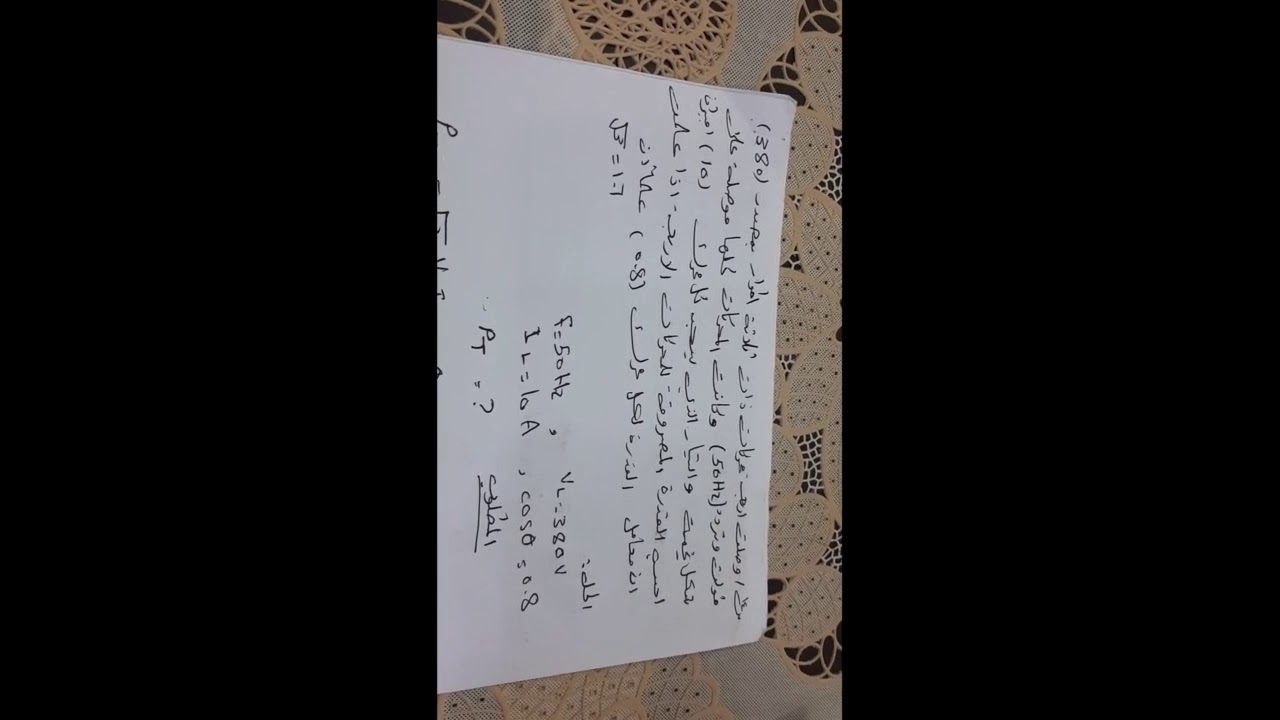 س٤/ وصلت اربع محركات ذات ثلاثة اطوار بمصدر (380)
فولت وتردد (50Hz) وكانت المحركات كلها موصلة على
شكل نجمة والتيار الذي يسحبه كل محرك (10) امبير
احسب القدرة المصروفة للمحركات الاربعة اذا علمت
ان معامل القدرة لكل محرك (0.8) علماً ان
√3 = 1.7
الحل:
f=50Hz , VL=380V
IL=10A , cosθ=0.8
PT=? المطلوب
P = √3 V I